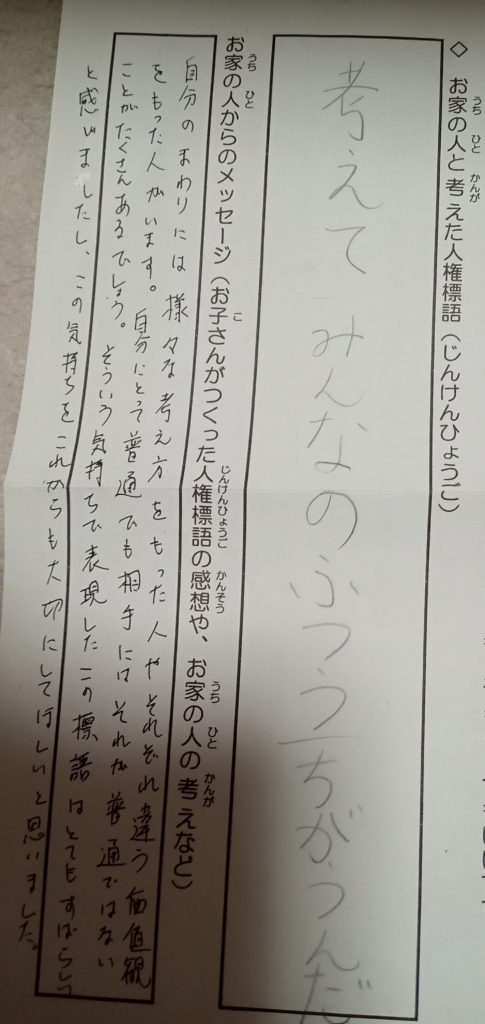 ◇ お家の人と考えた人権標語(じんけんひょうご)
考えて みんなのふつう ちがうんだ
お家の人からのメッセージ(お子さんがつくった人権標語の感想や、お家の人の考えなど)
自分のまわりには様々な考え方をもった人やそれぞれ違う価値観
をもった人がいます。自分にとって普通でも相手にはそれが普通ではない
ことがたくさんあるでしょう。そういう気持ちで表現したこの標語はとてもすばらしい
と感じましたし、この気持ちをこれからも大切にしてほしいと思いました。